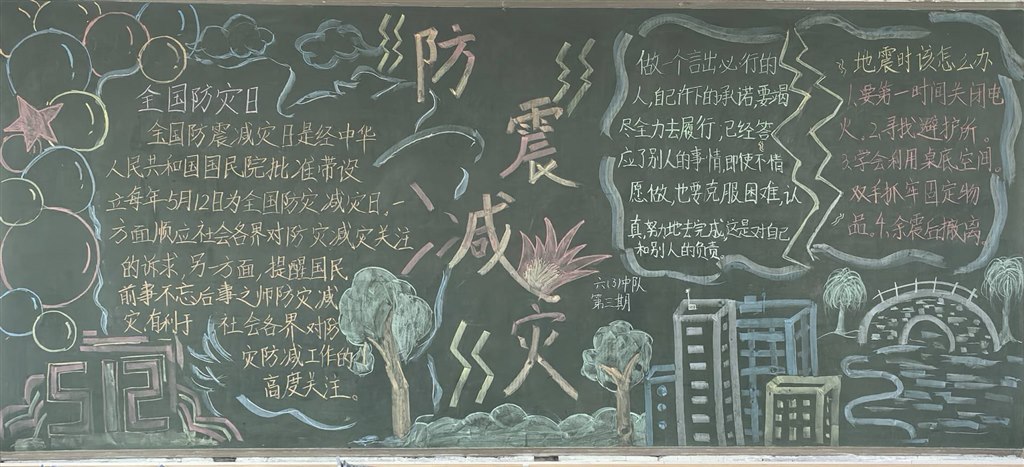 全国防灾日
全国防震减灾日是经中华
人民共和国国民院批准带设
立每年5月12日为全国防灾减灾日,一
方面顺应社会各界对防灾减灾关注
的诉求,另一方面,提醒国民,
前事不忘后事之师防灾减
灾,有利于 社会各界对防
灾防减工作的
高度关注。
512
防
震
减
灾
六(3)中队
第三期
做一个言出必行的
人,自己许下的承诺要竭
尽全力去履行,已经答
应了别人的事情即使不情
愿做,也要克服困难,认
真努力地去完成,这是对自己
和别人的负责
地震时该怎么办
1.要第一时间关闭电
火,2.寻找避护所,
3.学会利用桌底空间,
双手抓牢固定物
品,4.余震后撤离,